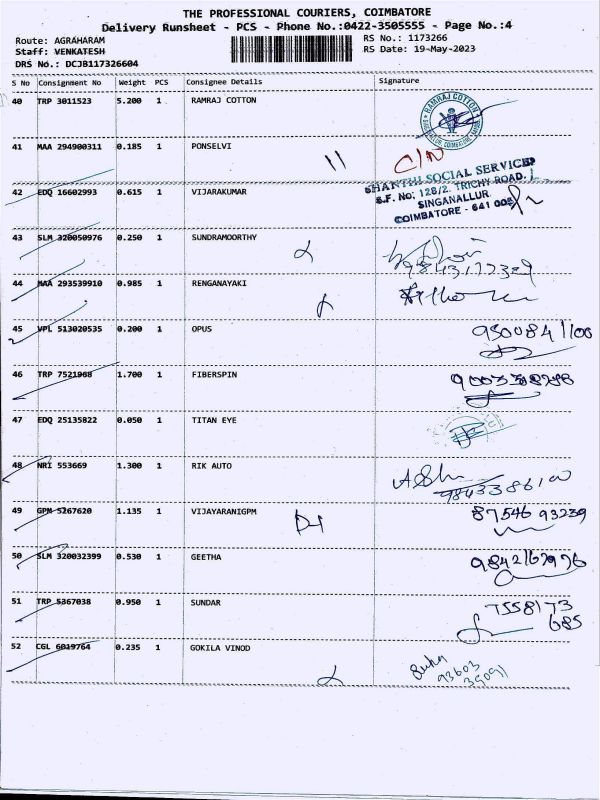 THE PROFESSIONAL COURIERS, COIMBATORE
Delivery Runsheet - PCS - Phone No.:0422-3505555 - Page No.:4
Route: AGRAHARAM
RS No.: 1173266
Staff: VENKATESH
RS Date: 19-May-2023
DRS No.: DCJB117326604
S No Consignment No Weight PCS Consignee Details Signature
40 TRP 3011523 5.200 1 RAMRAJ COTTON
RAMRAJ COTTON
41 MAA 294900311 0.185 1 PONSELVI
C/N
SHANTHI SOCIAL SERVICES
S.F. No: 128/2, TRICHY ROAD,
SINGANALLUR,
COIMBATORE - 641 005
42 EDQ 16602993 0.615 1 VIJARAKUMAR
43 SLM 320050976 0.250 1 SUNDRAMOORTHY
44 MAA 293539910 0.985 1 RENGANAYAKI
45 VPL 513020535 0.200 1 OPUS
46 TRP 7521968 1.700 1 FIBERSPIN
47 EDQ 25135822 0.050 1 TITAN EYE
48 NRI 553669 1.300 1 RIK AUTO
49 GPM 5267620 1.135 1 VIJAYARANIGPM
87546 93239
50 SLM 320032399 0.530 1 GEETHA
51 TRP 5367038 0.950 1 SUNDAR
7558173
685
52 CGL 6019764 0.235 1 GOKILA VINOD
93603
39091